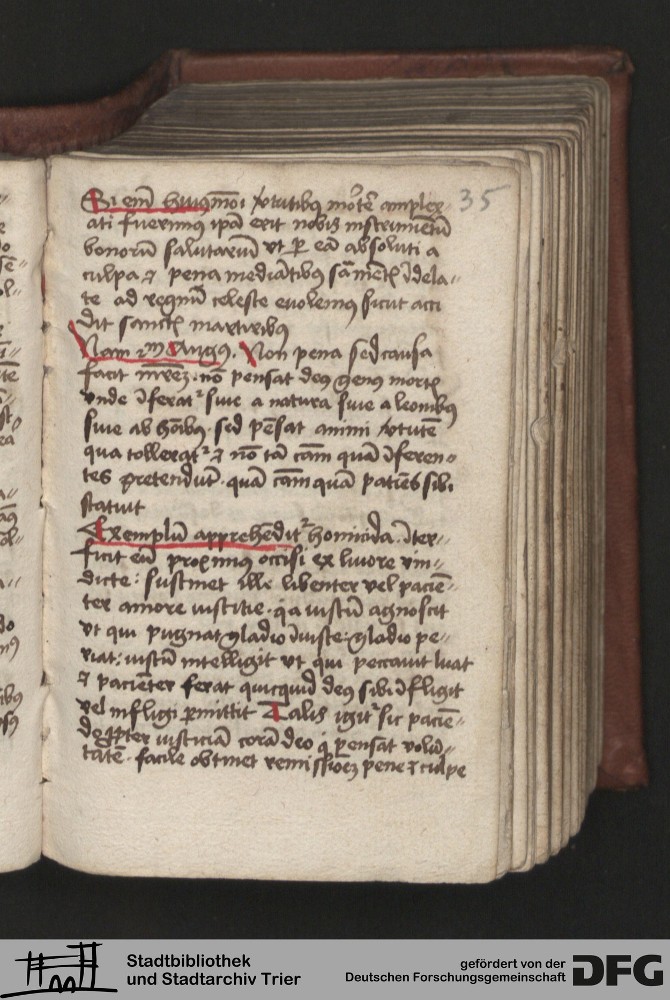 35
Si em̄ huiꝯmōi v̓tutibꝫ mōtē amplex
ati fuerimꝰ ipā erit nobis instrumētū
bonorū salutariū vt ꝑ eā absoluti a
culpa ⁊ pena mediātibꝫ sac̄mētꝭ īdela⸗
te ad regnū celeste euolemꝰ sicut acci
dit sanctꝭ martiribꝫ
Nam ẜm Augꝰ. Non pena sed causa
facit mr̄eꝫ. nō pensat deꝰ genꝰ mortꝭ
vnde īferat᷑ siue a natura siue a leonibꝫ
siue ab hōibꝫ. sed pēsat animi v̓tutē
qua tollerat᷑ ⁊ nō tā cām quā īferen⸗
tes p̄tendūt. quā cām quā patiēs sibi
statuit
Exemplū apprehēdit᷑ homicida. īter⸗
ficit eū proximꝰ occisi ex liuore vin⸗
dicte: sustinet ille libenter vel paciē⸗
ter amore iusticie. q̇a iustū agnoscit
vt qui pugnat gladio īiuste: gladio pe⸗
riat: iustū intelligit vt qui peccauit luat
⁊ paciēter ferat quicquid deꝰ sibi īfligit
vel infligi ꝑmittit Talis igit᷑ sic paciē⸗
do ꝓpter iusticiā corā deo q̇ pensat volū⸗
tatē. facile obtinet remissioēꝫ pene ⁊ culpe
Stadtbibliothek
und Stadtarchiv Trier
gefördert von der
Deutschen Forschungsgemeinschaft
DFG